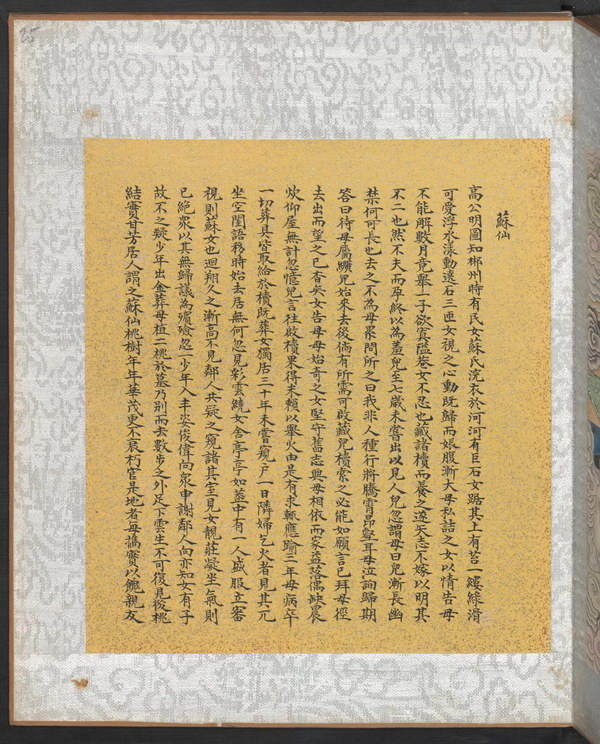 蘇仙
高公明圖知郴州時有民女蘇氏洗衣於河河有巨石女踞其上有苔一縷綠滑
可愛浮水漾動遶石三匝女視之心動既歸而娠腹漸大母私詰之女以情告母
不能解數月竟舉一子欲寘隘巷女不忍也藏諸櫝而養之遂矢志不嫁以明其
不二也然不夫而孕終以為羞兒至七歲未嘗出以見人兒忽謂母曰兒漸長幽
禁何可長也去之不為母累問所之曰我非人種行將騰霄昂壑耳母泣詢歸期
答曰待母屬纊兒始來去後倘有所需可啟藏兒櫝索之必能如願言已拜母徑
去出而望之已杳矣女告母母始奇之女堅守舊志與母相依而家益落偶缺晨
炊仰屋無計忽憶兒言往啟櫝果得米賴以舉火由是有求輒應踰三年母病卒
一切葬具皆取給於櫝既葬女獨居三十年未嘗窺戶一日隣婦乞火者見其兀
坐空閨語移時始去居無何忽見彩雲繞女舍亭亭如蓋中有一人盛服立審
視則蘇女也迴翔久之漸高不見鄰人共疑之窺諸其室見女靚莊凝坐氣則
已絕眾以其無歸議為殯殮忽一少年入丰姿俊偉向眾申謝鄰人向亦知女有子
故不之疑少年出金葬母植二桃於墓乃別而去數步之外足下雲生不可復見後桃
結實甘芳居人謂之蘇仙桃樹年年華茂更不衰朽官是地者每攜實以餽親友
25